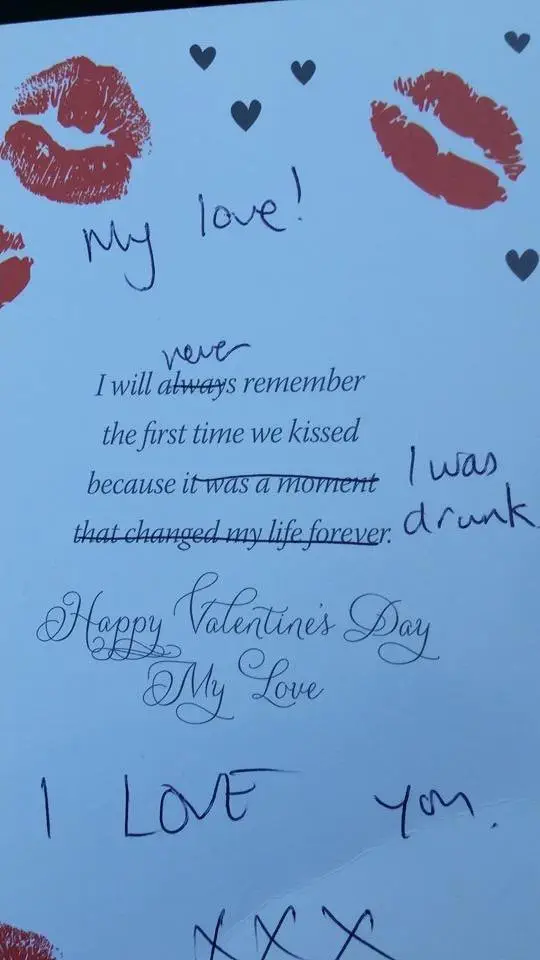 My love!
never
I will always remember
the first time we kissed
because it was a moment I was
that changed my life forever. drunk
Happy Valentine's Day
My Love
I LOVE you.
XXX